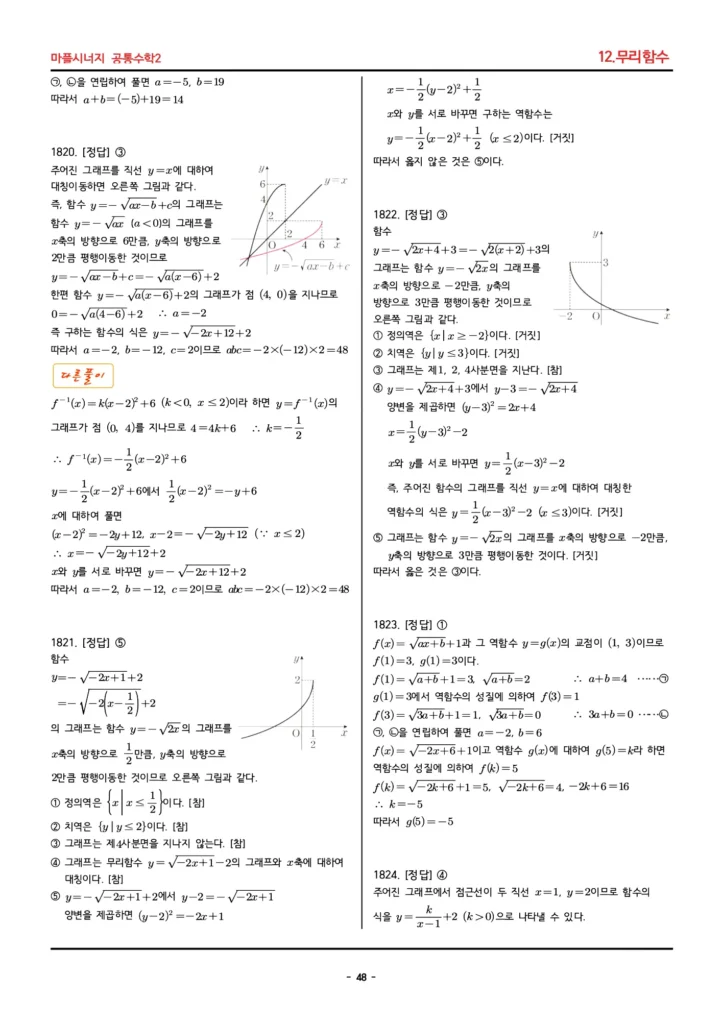 마플시너지 공통수학2
12.무리함수
㉠, ㉡을 연립하여 풀면 a=-5, b=19
따라서 a+b=(-5)+19=14
1820. [정답] ③
주어진 그래프를 직선 y=x에 대하여
대칭이동하면 오른쪽 그림과 같다.
즉, 함수 y=-√(ax-b)+c의 그래프는
함수 y=-√(ax) (a<0)의 그래프를
x축의 방향으로 6만큼, y축의 방향으로
2만큼 평행이동한 것이므로
y
6
4
2
2
O
4
6
x
y=x
y=-√(ax-b)+c
y=-√(ax-b)+c=-√(a(x-6))+2
한편 함수 y=-√(a(x-6))+2의 그래프가 점 (4, 0)을 지나므로
0=-√(a(4-6))+2 ∴ a=-2
즉 구하는 함수의 식은 y=-√(-2x+12)+2
따라서 a=-2, b=-12, c=2이므로 abc=-2×(-12)×2=48
다른풀이
f⁻¹(x)=k(x-2)²+6 (k<0, x≤2)이라 하면 y=f⁻¹(x)의
그래프가 점 (0, 4)를 지나므로 4=4k+6 ∴ k=-1/2
∴ f⁻¹(x)=-1/2(x-2)²+6
y=-1/2(x-2)²+6에서 1/2(x-2)²=-y+6
x에 대하여 풀면
(x-2)²=-2y+12, x-2=-√(-2y+12) (∵ x≤2)
∴ x=-√(-2y+12)+2
x와 y를 서로 바꾸면 y=-√(-2x+12)+2
따라서 a=-2, b=-12, c=2이므로 abc=-2×(-12)×2=48
1821. [정답] ⑤
함수
y=-√(-2x+1)+2
=-√(-2(x-1/2))+2
의 그래프는 함수 y=-√(-2x)의 그래프를
x축의 방향으로 1/2만큼, y축의 방향으로
2만큼 평행이동한 것이므로 오른쪽 그림과 같다.
y
2
O
1/2
x
① 정의역은 {x|x≤1/2}이다. [참]
② 치역은 {y|y≤2}이다. [참]
③ 그래프는 제4사분면을 지나지 않는다. [참]
④ 그래프는 무리함수 y=√(-2x+1)-2의 그래프와 x축에 대하여
대칭이다. [참]
⑤ y=-√(-2x+1)+2에서 y-2=-√(-2x+1)
양변을 제곱하면 (y-2)²=-2x+1
x=-1/2(y-2)²+1/2
x와 y를 서로 바꾸면 구하는 역함수는
y=-1/2(x-2)²+1/2 (x≤2)이다. [거짓]
따라서 옳지 않은 것은 ⑤이다.
1822. [정답] ③
함수
y=-√(2x+4)+3=-√(2(x+2))+3의
그래프는 함수 y=-√(2x)의 그래프를
x축의 방향으로 -2만큼, y축의
방향으로 3만큼 평행이동한 것이므로
오른쪽 그림과 같다.
y
3
-2
O
x
① 정의역은 {x|x≥-2}이다. [거짓]
② 치역은 {y|y≤3}이다. [거짓]
③ 그래프는 제1, 2, 4사분면을 지난다. [참]
④ y=-√(2x+4)+3에서 y-3=-√(2x+4)
양변을 제곱하면 (y-3)²=2x+4
x=1/2(y-3)²-2
x와 y를 서로 바꾸면 y=1/2(x-3)²-2
즉, 주어진 함수의 그래프를 직선 y=x에 대하여 대칭한
역함수의 식은 y=1/2(x-3)²-2 (x≤3)이다. [거짓]
⑤ 그래프는 함수 y=-√(2x)의 그래프를 x축의 방향으로 -2만큼,
y축의 방향으로 3만큼 평행이동한 것이다. [거짓]
따라서 옳은 것은 ③이다.
1823. [정답] ①
f(x)=√(ax+b)+1과 그 역함수 y=g(x)의 교점이 (1, 3)이므로
f(1)=3, g(1)=3이다.
f(1)=√(a+b)+1=3, √(a+b)=2 ∴ a+b=4 ⋯⋯㉠
g(1)=3에서 역함수의 성질에 의하여 f(3)=1
f(3)=√(3a+b)+1=1, √(3a+b)=0 ∴ 3a+b=0 ⋯⋯㉡
㉠, ㉡을 연립하여 풀면 a=-2, b=6
f(x)=√(-2x+6)+1이고 역함수 g(x)에 대하여 g(5)=k라 하면
역함수의 성질에 의하여 f(k)=5
f(k)=√(-2k+6)+1=5, √(-2k+6)=4, -2k+6=16
∴ k=-5
따라서 g(5)=-5
1824. [정답] ④
주어진 그래프에서 점근선이 두 직선 x=1, y=2이므로 함수의
식을 y=k/(x-1)+2 (k>0)으로 나타낼 수 있다.
- 48 -